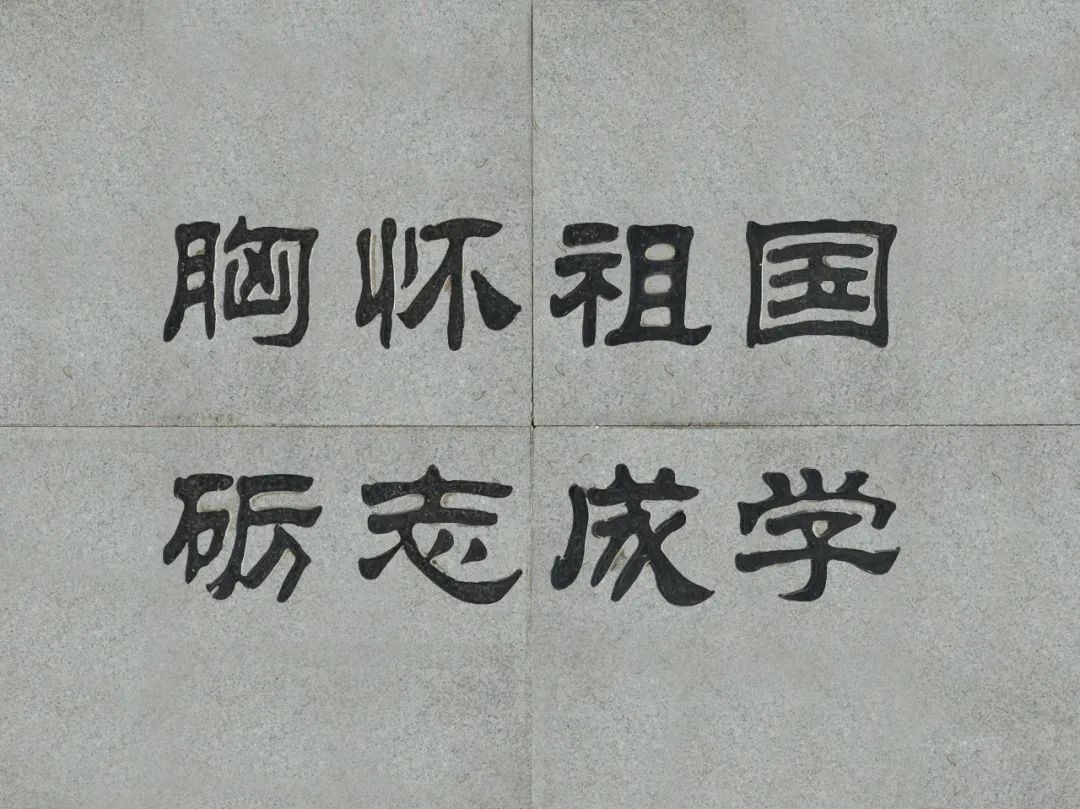 胸怀祖国
砺志成学